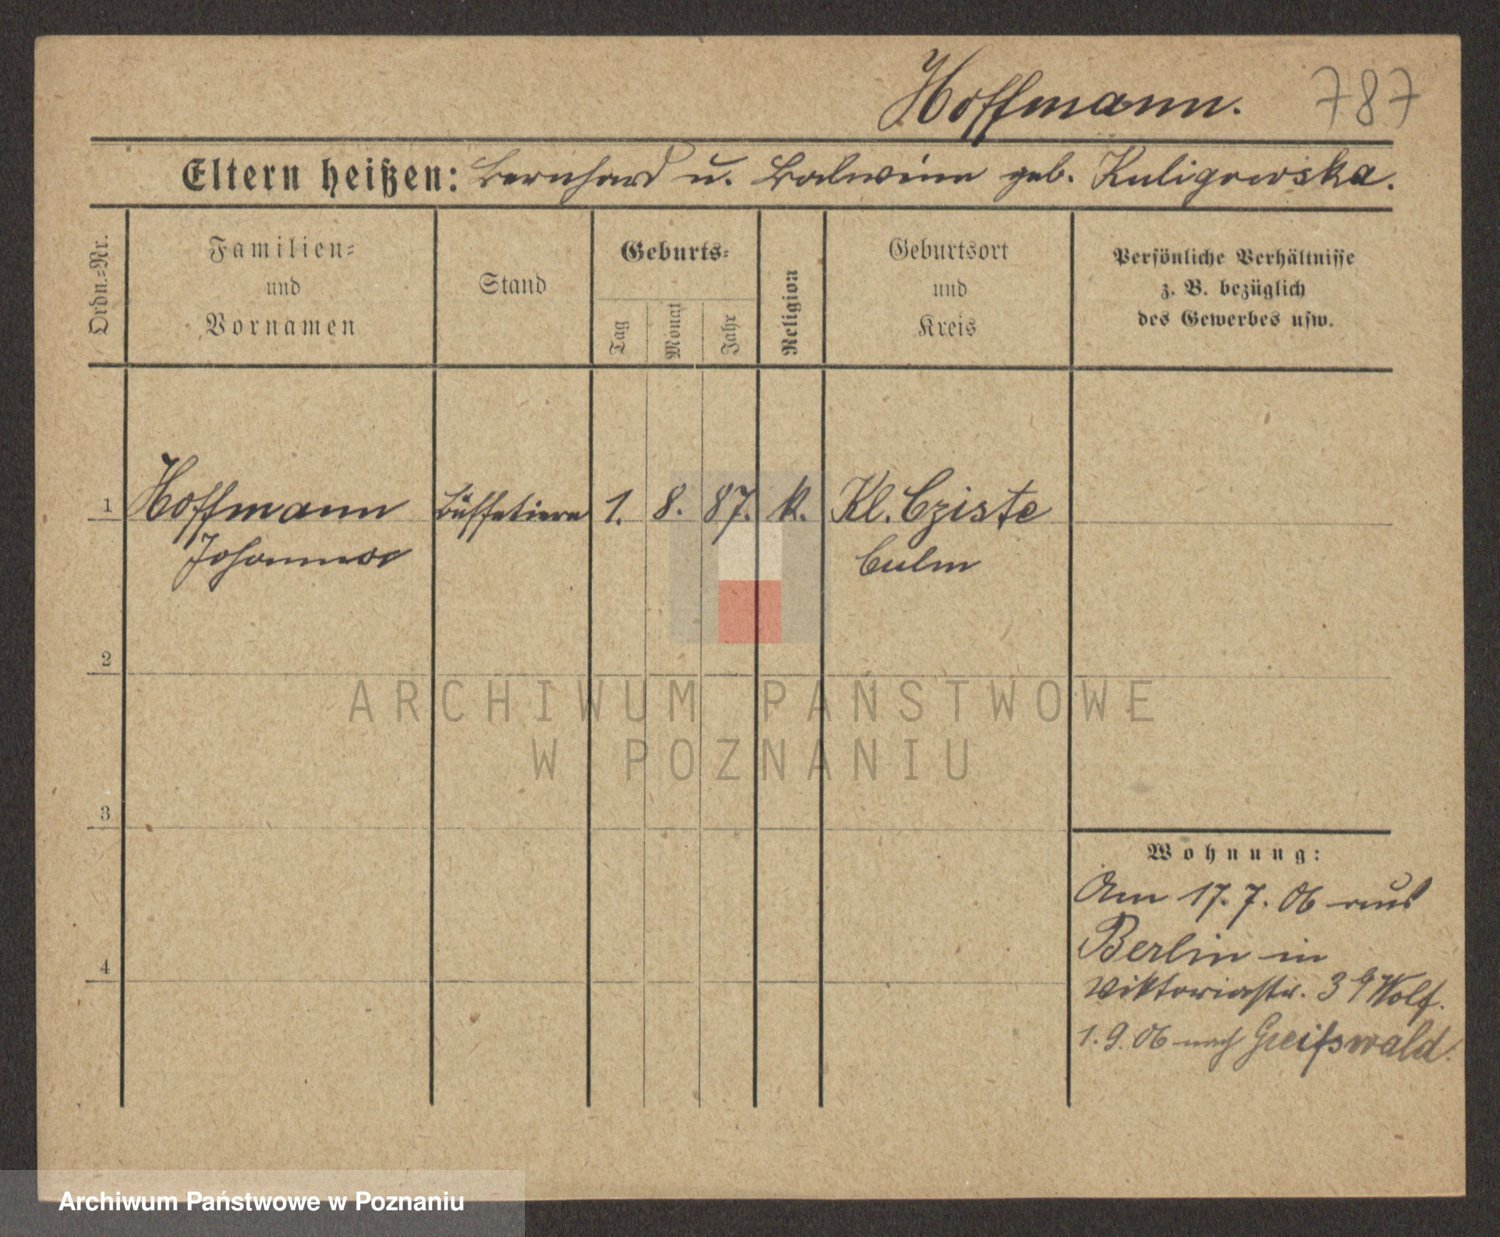 Hoffmann. 787
Eltern heißen: Bernhard u. Balwina geb. Kuligowska.
Ordn.-Nr.
Familien- und Vornamen
Stand
Geburts-
Tag
Monat
Jahr
Religion
Geburtsort und Kreis
Persönliche Verhältnisse
z. B. bezüglich
des Gewerbes usw.
1 Hoffmann Büffetiere 1. 8. 87. k. Kl. Cziste
Johanna Culm
2
ARCHIWUM PAŃSTWOWE
W POZNANIU
3
Wohnung:
Am 17. 7. 06 aus
Berlin in
4
Viktoriastr. 39 Wolf.
1. 9. 06 nach Greifswald.
Archiwum Państwowe w Poznaniu